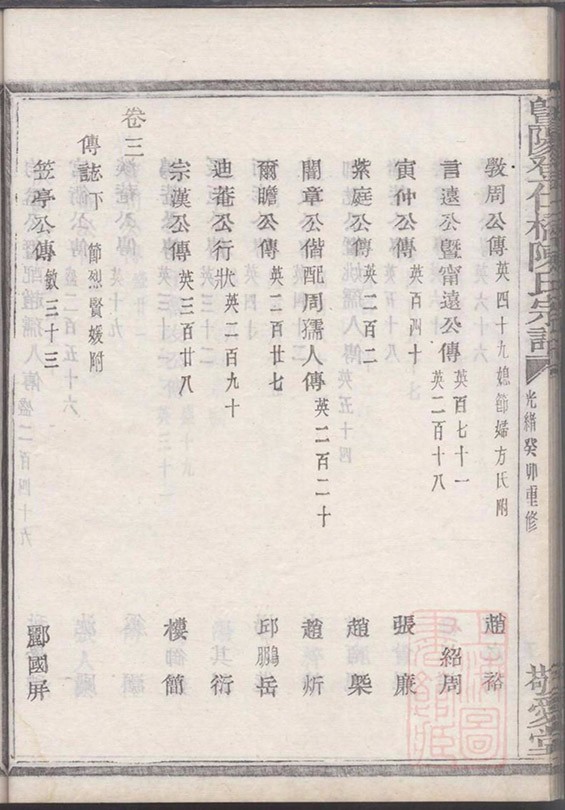 暨陽登仕橋陳氏宗譜 光緒癸卯重修 敬愛堂
敎周公傳英四十九媳節婦方氏附 趙裕
言遠公暨甯遠公傳英百七十一英二百十八 趙紹周
寅仲公傳英百四十 張廉
紫庭公傳英二百二 趙槼
闇章公偕配周孺人傳英二百二十 趙炘
爾瞻公傳英二百廿七 邱鵬岳
迪菴公行狀英二百九十 衍
宗漢公傳英三百廿八 樓簡
卷三
傳誌下 節烈賢媛附
笠亭公傳敏三十三 酈國屏